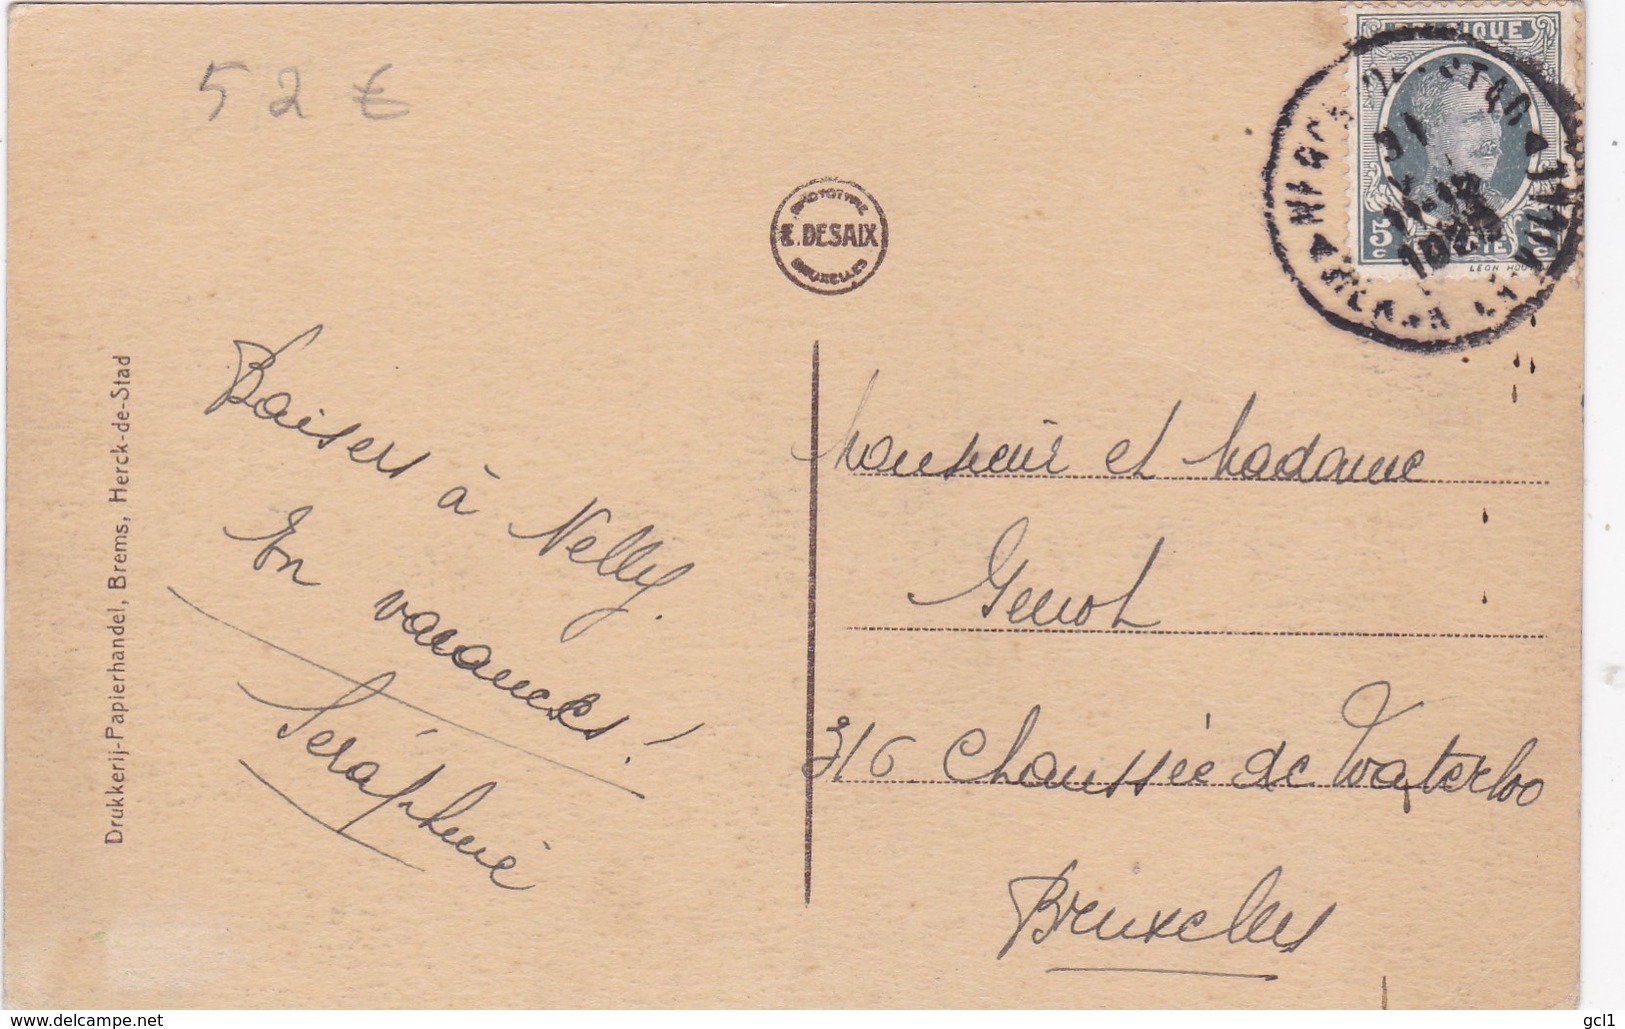 52 €
PHOTOTYPIE
E. DESAIX
BRUXELLES
5 c
LÉON HOU
Drukkerij-Papierhandel, Brems, Herck-de-Stad
Baisers à Nelly.
En vacances!
Séraphine
Monsieur et Madame
Genot
316 Chaussée de Waterloo
Bruxelles
www.delcampe.net
gcl1